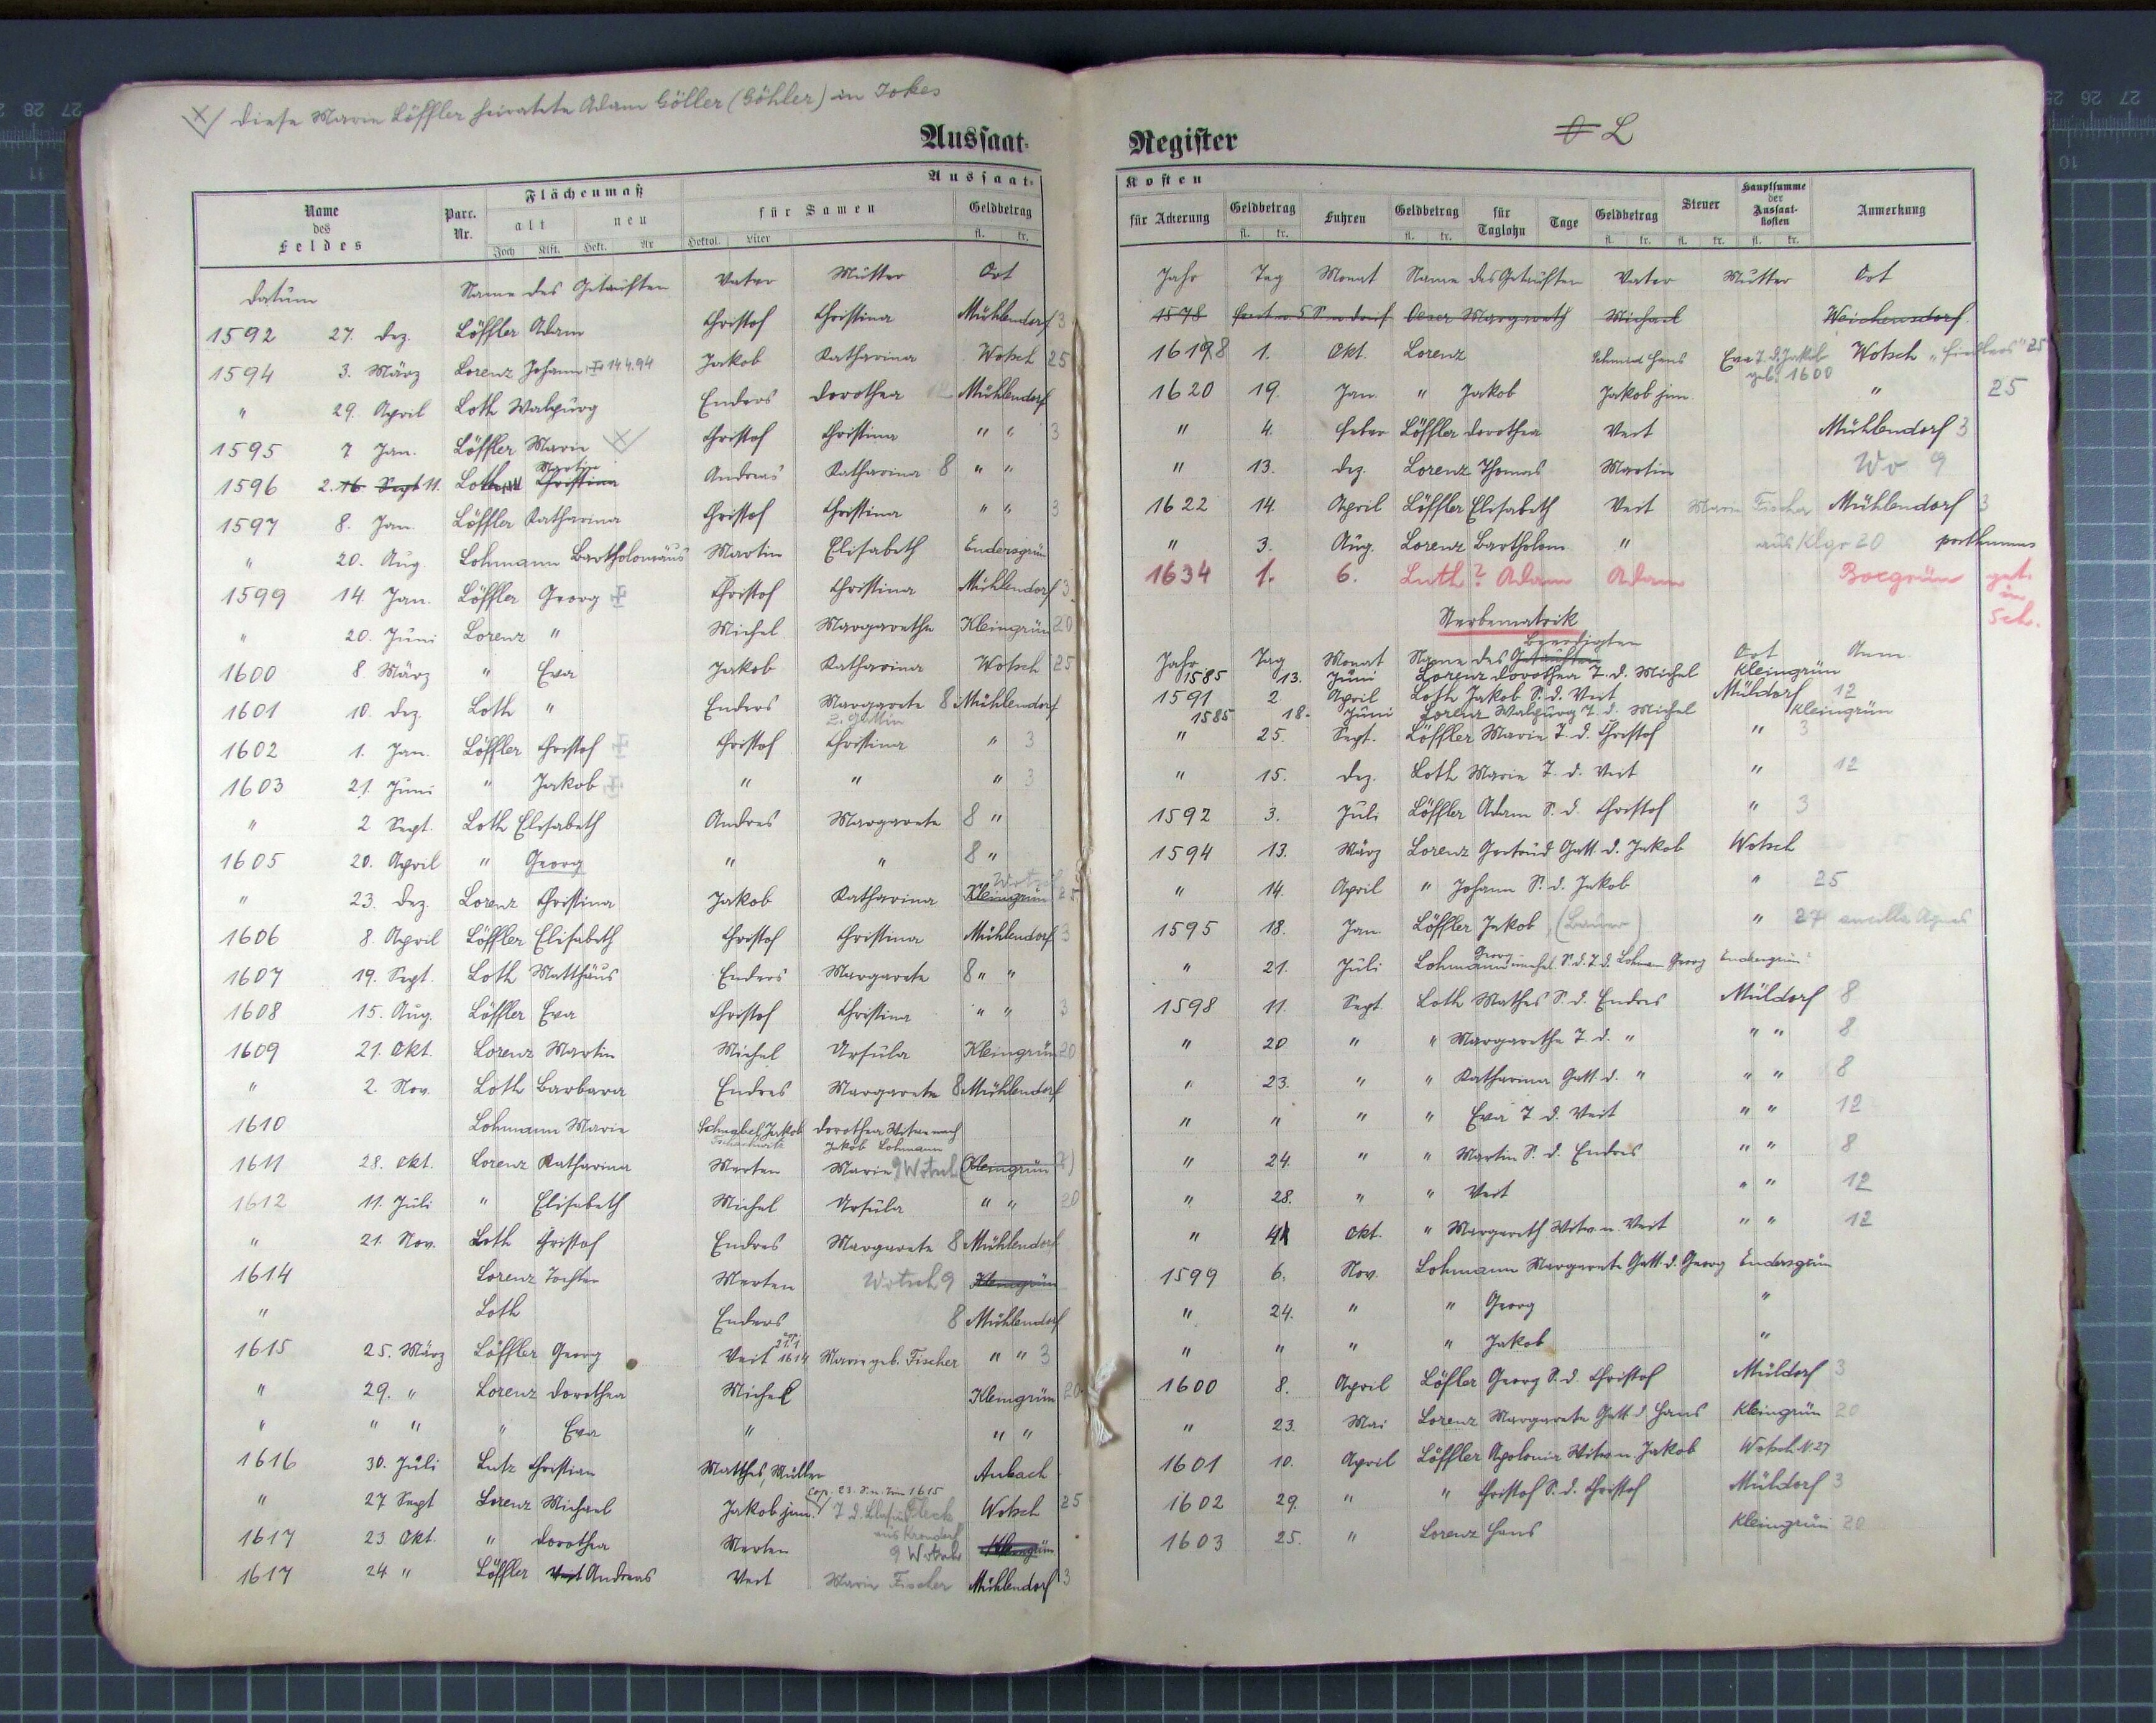 Diese Marie Löffler heiratete Adam Göller (Göhler) in Jokes
Aussaat-
Aussaat-
Name des Feldes Parc. Nr. Flächenmaß alt neu für Samen Geldbetrag
Joch Klft. Hekt. Ar Hektol. Liter fl. kr.
Datum Name des Getauften Vater Mutter Ort
1592 27. Dez. Löffler Adam Christof Christina Mühlendorf 3
1594 3. März Lorenz Johann 14.4.94 Jakob Katharina Wotsch 25
" 29. April Loth Walpurg Enders Dorothea 12 Mühlendorf
1595 7 Jan. Löffler Marie Christof Christina " " 3
1596 2. 16. Sept 11. Loth Martin Christina Andreas Katharina 8 " "
1597 8. Jan. Löffler Katharina Christof Christina " " 3
" 20. Aug. Lohmann Bartholomäus Martin Elisabeth Endersgrün
1599 14. Jan. Löffler Georg Christof Christina Mühlendorf 3
" 20. Juni Lorenz " Michel Margarethe Kleingrün 20
1600 8. März " Eva Jakob Katharina Wotsch 25
1601 10. Dez. Loth " Enders Margarete 8 Mühlendorf
2. Gattin
1602 1. Jan. Löffler Christof Christof Christina " 3
1603 21. Juni " Jakob " " " 3
" 2 Sept. Loth Elisabeth Andres Margarete 8 "
1605 20. April " Georg " " 8 "
" 23. Dez. Lorenz Christina Jakob Katharina Wotsch Kleingrün 25
1606 8. April Löffler Elisabeth Christof Christina Mühlendorf 3
1607 19. Sept. Loth Matthäus Enders Margarete 8 " "
1608 15. Aug. Löffler Eva Christof Christina " " 3
1609 21. Okt. Lorenz Martin Michel Ursula Kleingrün 20
" 2. Nov. Loth Barbara Endres Margarete 8 Mühlendorf
1610 Lohmann Marie Schnabel Jakob Dorothea Witwe nach
Jakob Lohmann
1611 28. Okt. Lorenz Katharina Merten Marie 9 Wotsch (Kleingrün ?)
1612 11. Juli " Elisabeth Michel Ursula " " 20
" 21. Nov. Loth Christof Endres Margarete 8 Mühlendorf
1614 Lorenz Tochter Merten Wotsch 9 Kleingrün
" Loth Enders 8 Mühlendorf
1615 25. März Löffler Georg Veit 1614 Marie geb. Fischer " " 3
" 29. " Lorenz Dorothea Michel Kleingrün 20
" " " " Eva " " "
1616 30. Juli Lutz Christian Matthes, Müller Aubach
" 27 Sept Lorenz Michael Jakob jun. Cop. 23. 1615 T. d. Fleck Wotsch 25
aus Krondorf
1617 23 Okt. " Dorothea Merten 9 Wotsch Kleingrün
1617 24 " Löffler Veit Andreas Veit Marie Fischer Mühlendorf 3
Register
O L
Kosten
für Ackerung Geldbetrag Fuhren Geldbetrag für Taglohn Tage Geldbetrag Steuer Hauptsumme der Aussaat-kosten Anmerkung
fl. kr. fl. kr. fl. kr. fl. kr. fl. kr.
Jahr Tag Monat Name des Getauften Vater Mutter Ort
1578 Oeser Margareth Michael Weichensdorf
16198 1. Okt. Lorenz Schmid Hans Eva T. d. Jakob Wotsch 25
geb. 1600
1620 19. Jan. " Jakob Jakob jun. " 25
" 4. Feber Löffler Dorothea Veit Mühlendorf 3
" 13. Dez. Lorenz Thomas Martin Wo 9
1622 14. April Löffler Elisabeth Veit Marie Fischer Mühlendorf 3
" 3. Aug. Lorenz Bartholom. " aus Klgr 20 posthumus
1634 1. 6. Luth? Adam Adam Bocgrün get. in Sch.
Sterbematrik
Jahr Tag Monat Name des Getauften Beerdigten Ort Anm.
1585 13. Juni Lorenz Dorothea T. d. Michel Kleingrün
1591 2 April Loth Jakob S. d. Veit Müldorf 12
1585 18. Juni Lorenz Walpurg T. d. Michel Kleingrün
" 25. Sept. Löffler Marie T. d. Christof " 3
" 15. Dez. Loth Marie T. d. Veit " 12
1592 3. Juli Löffler Adam S. d. Christof " 3
1594 13. März Lorenz Gertrud Gatt. d. Jakob Wotsch
" 14. April " Johann S. d. Jakob " 25
1595 18. Jan. Löffler Jakob (Bauer) " 27 ancilla Agnes
" 21. Juli Lohmann Georg unehel. S. d. T. d. Lohmann Georg Endersgrün
1598 11. Sept. Loth Mathes S. d. Endres Müldorf 8
" 20 " " Margarethe T. d. " " " 8
" 23. " " Katharina Gatt. d. " " " 8
" " " " Eva T. d. Veit " " 12
" 24. " " Martin S. d. Endres " " 8
" 28. " " Veit " " 12
" 4 Okt. " Margareth Witw. n. Veit " " 12
1599 6. Nov. Lohmann Margarete Gatt. d. Georg Endersgrün
" 24. " " Georg "
" " " " Jakob "
1600 8. April Löfler Georg S. d. Christof Müldorf 3
" 23. Mai Lorenz Margarete Gatt. d. Hans Kleingrün 20
1601 10. April Löffler Apolonia Witw. n. Jakob Wotsch N. 27
1602 29. " " Christof S. d. Christof Müldorf 3
1603 25. " Lorenz Hans Kleingrün 20